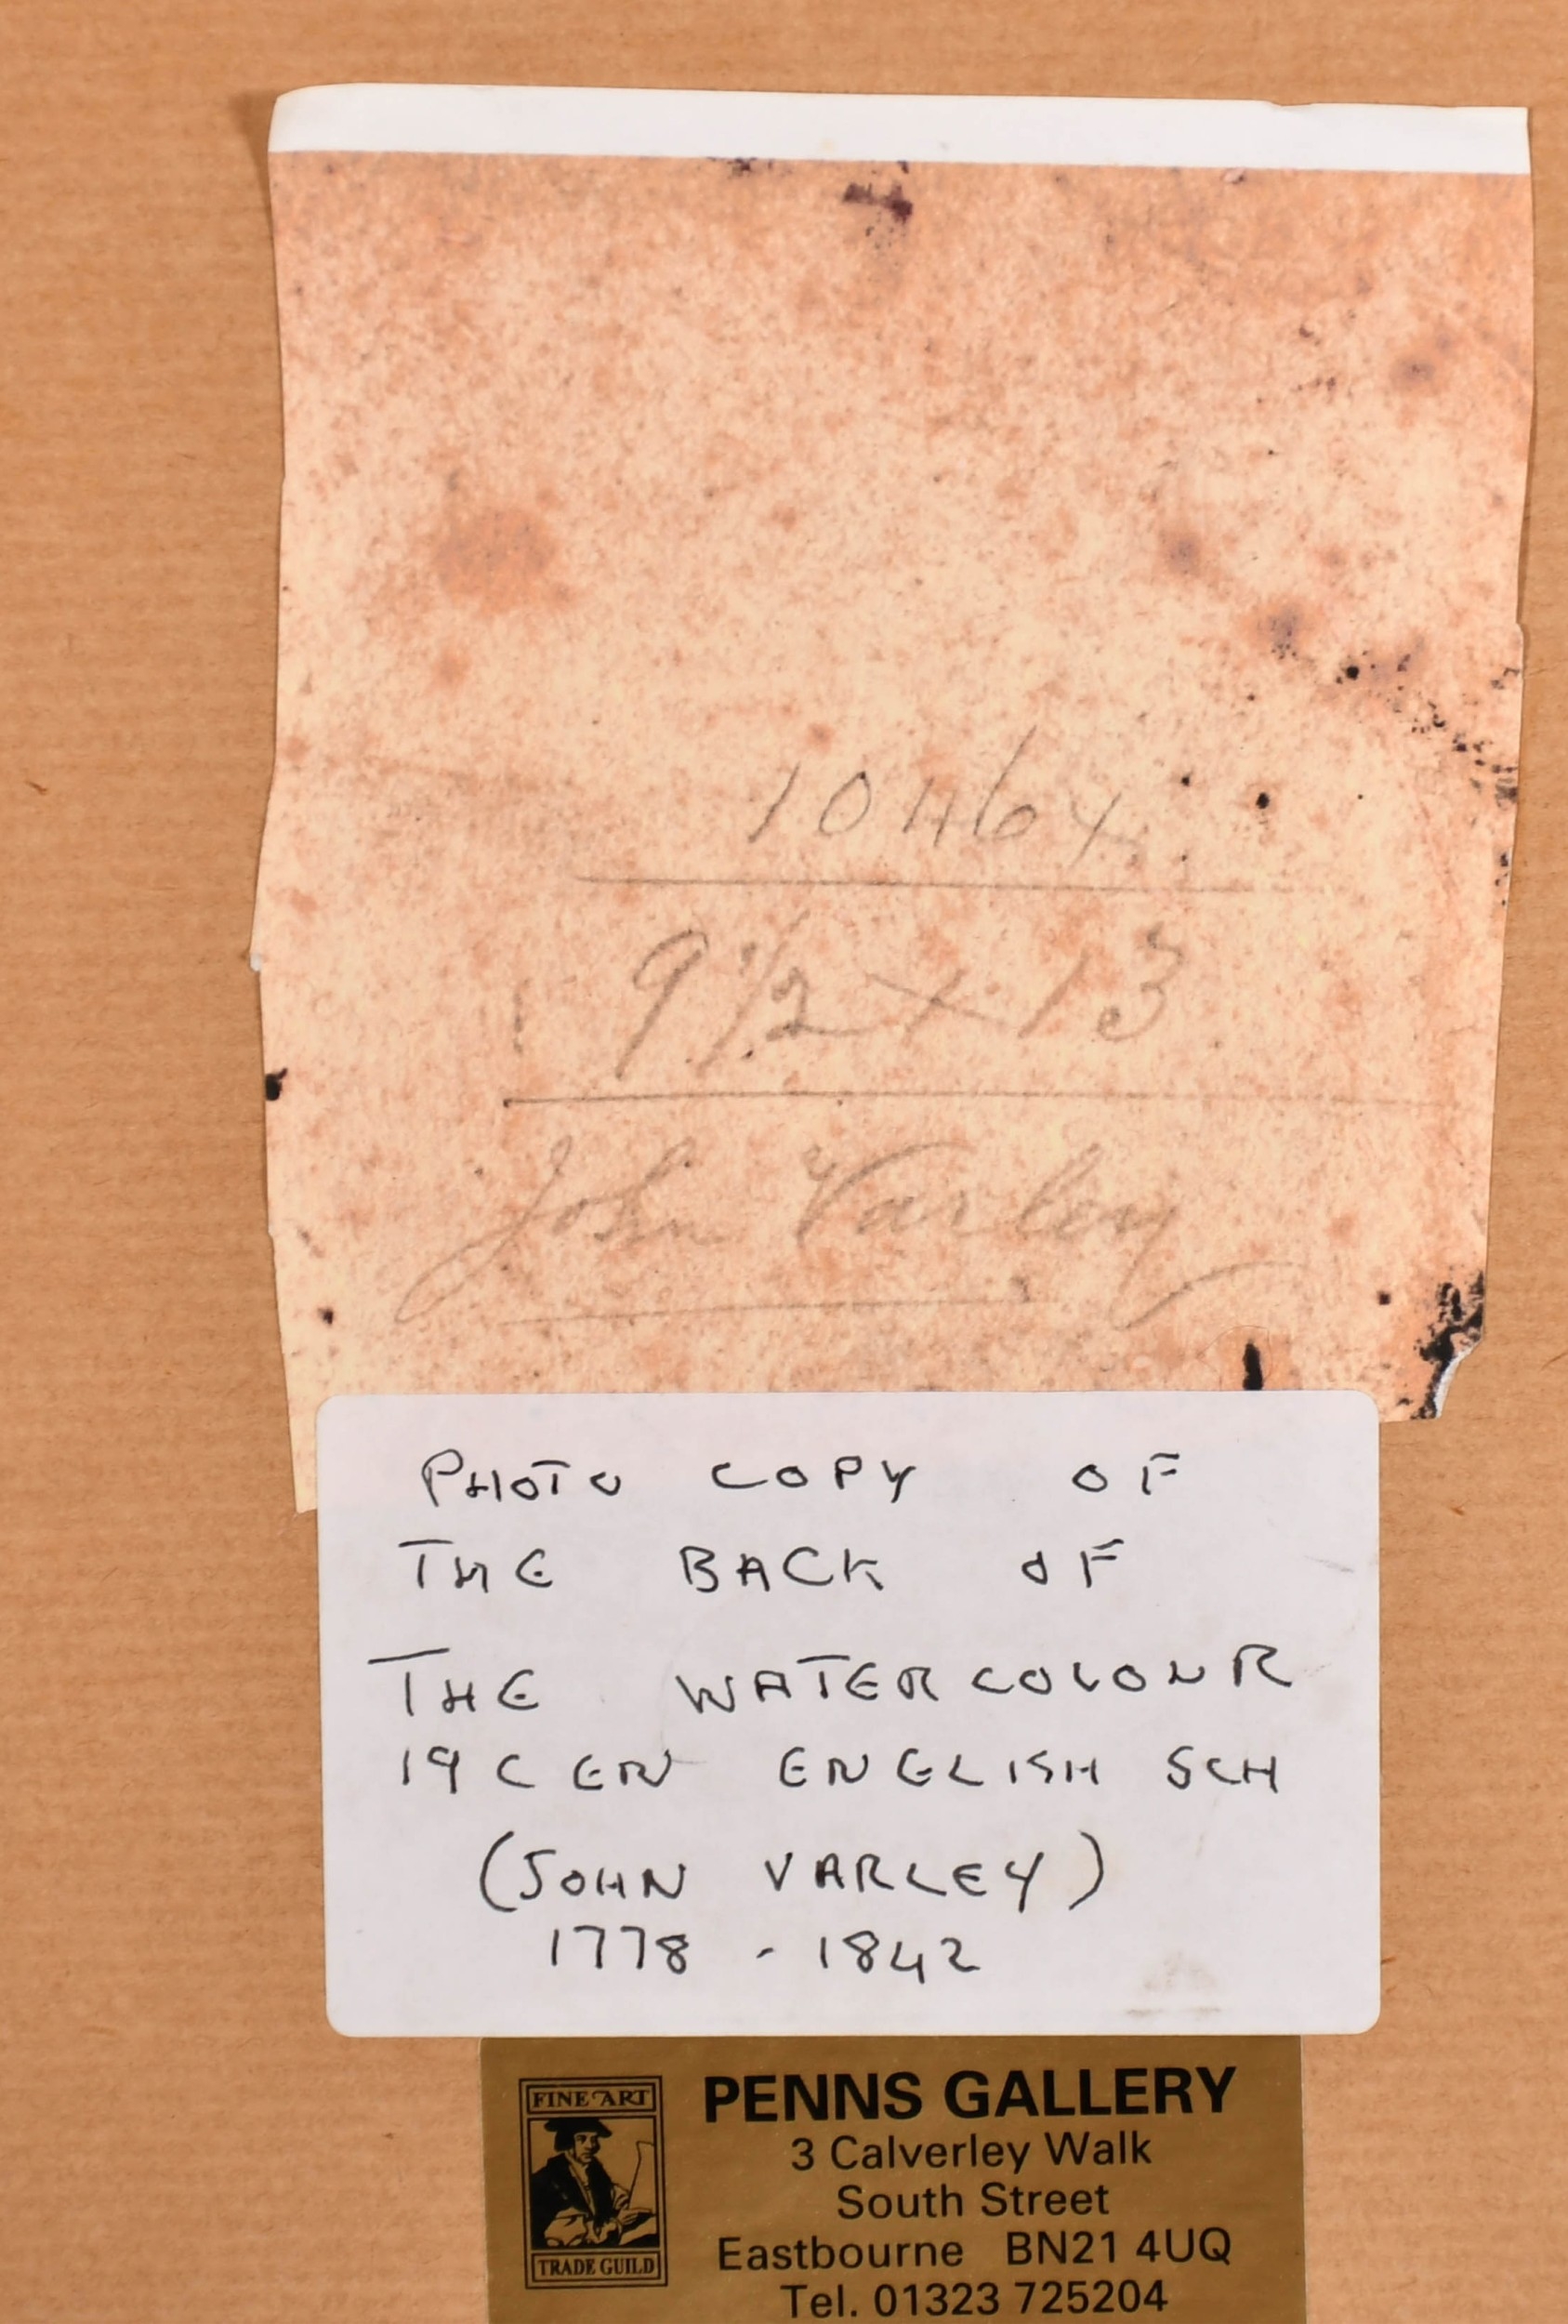 1046x
9 1/2 x 13
John Varley
PHOTO COPY OF
THE BACK OF
THE WATERCOLOUR
19 CEN ENGLISH SCH
(JOHN VARLEY)
1778 - 1842
FINE ART
TRADE GUILD
PENNS GALLERY
3 Calverley Walk
South Street
Eastbourne BN21 4UQ
Tel. 01323 725204